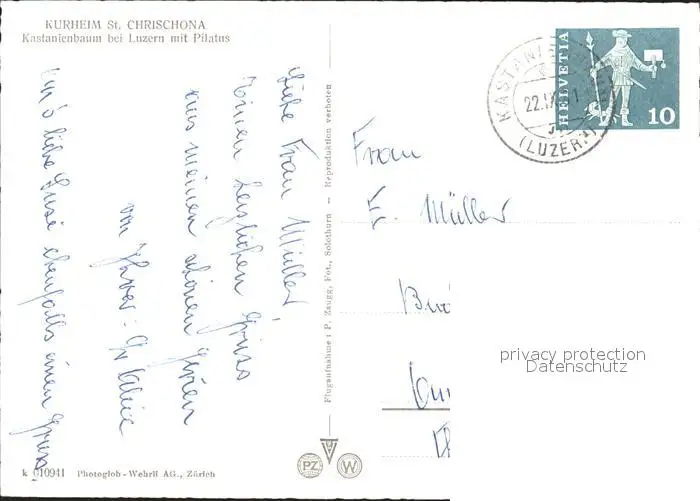 KURHEIM St. CHRISCHONA
Kastanienbaum bei Luzern mit Pilatus
Liebe Frau Müller
Einen herzlichen Gruss
aus meinen schönen Ferien
von Ihrer:
liebe Susi ebenfalls einen Gruss.
k 010941 Photoglob-Wehrli AG., Zürich
Flugaufnahme: P. Zaugg, Fot., Solothurn - Reproduktion verboten
PZ
W
HELVETIA
10
22.IX
(LUZERN)
Frau
E. Müller
privacy protection
Datenschutz